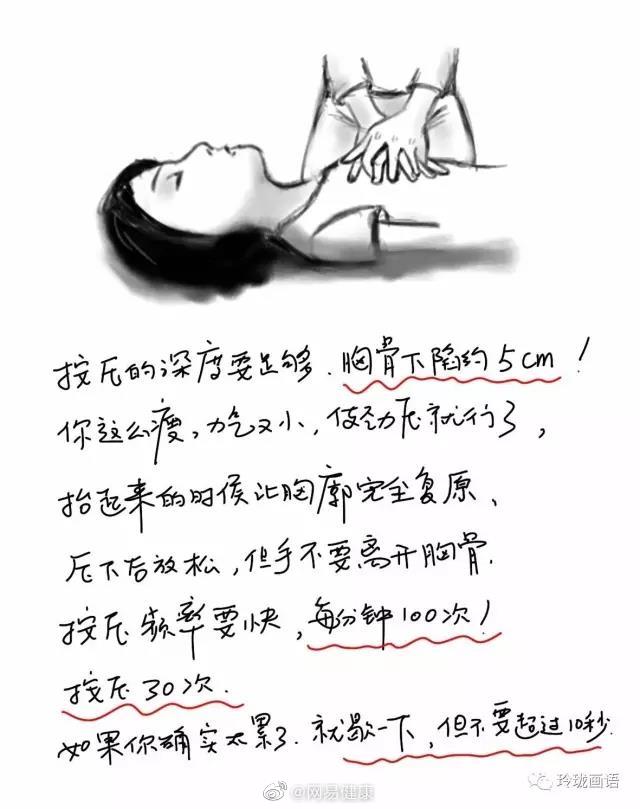 按压的深度要足够、胸骨下陷约5cm！
你这么瘦，力气又小，使劲压就行了，
抬起来的时候让胸廓完全复原、
压下后放松，但手不要离开胸骨.
按压频率要快，每分钟100次！
按压30次.
如果你确实太累了.就歇一下，但不要超过10秒.
@网易健康
玲珑画语